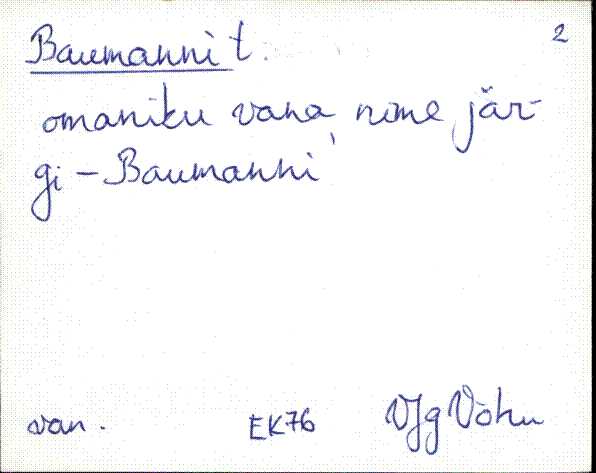 Baumanni t. 2
omaniku vana nime jär-
gi – Baumanni
van. EK76 VJg Võhu